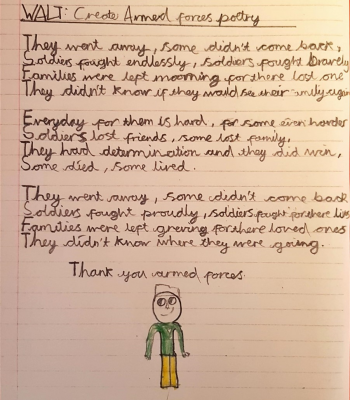 WALT: Create Armed forces poetry
They went away, some didn't come back,
Soldiers fought endlessly, soldiers fought bravely
Families were left moorning for there lost one
They didn't know if they would see their family again
Everyday for them is hard, for some even harder
Soldiers lost friends, some lost family,
They had determination and they did win,
Some died, some lived.
They went away, some didn't come back
Soldiers fought proudly, soldiers fought for there lives
Families were left greving for there loved ones
They didn't know where they were going.
Thank you armed forces.